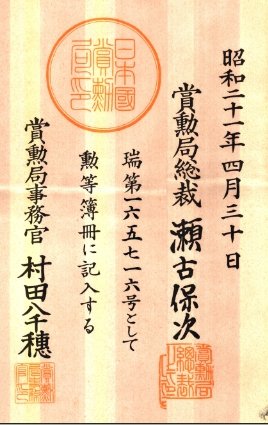 昭和二十一年四月三十日
賞勲局総裁 瀬古保次
瑞第一六五七一六号として
勲等簿冊に記入する
賞勲局事務官 村田八千穂
日本國賞勲局印